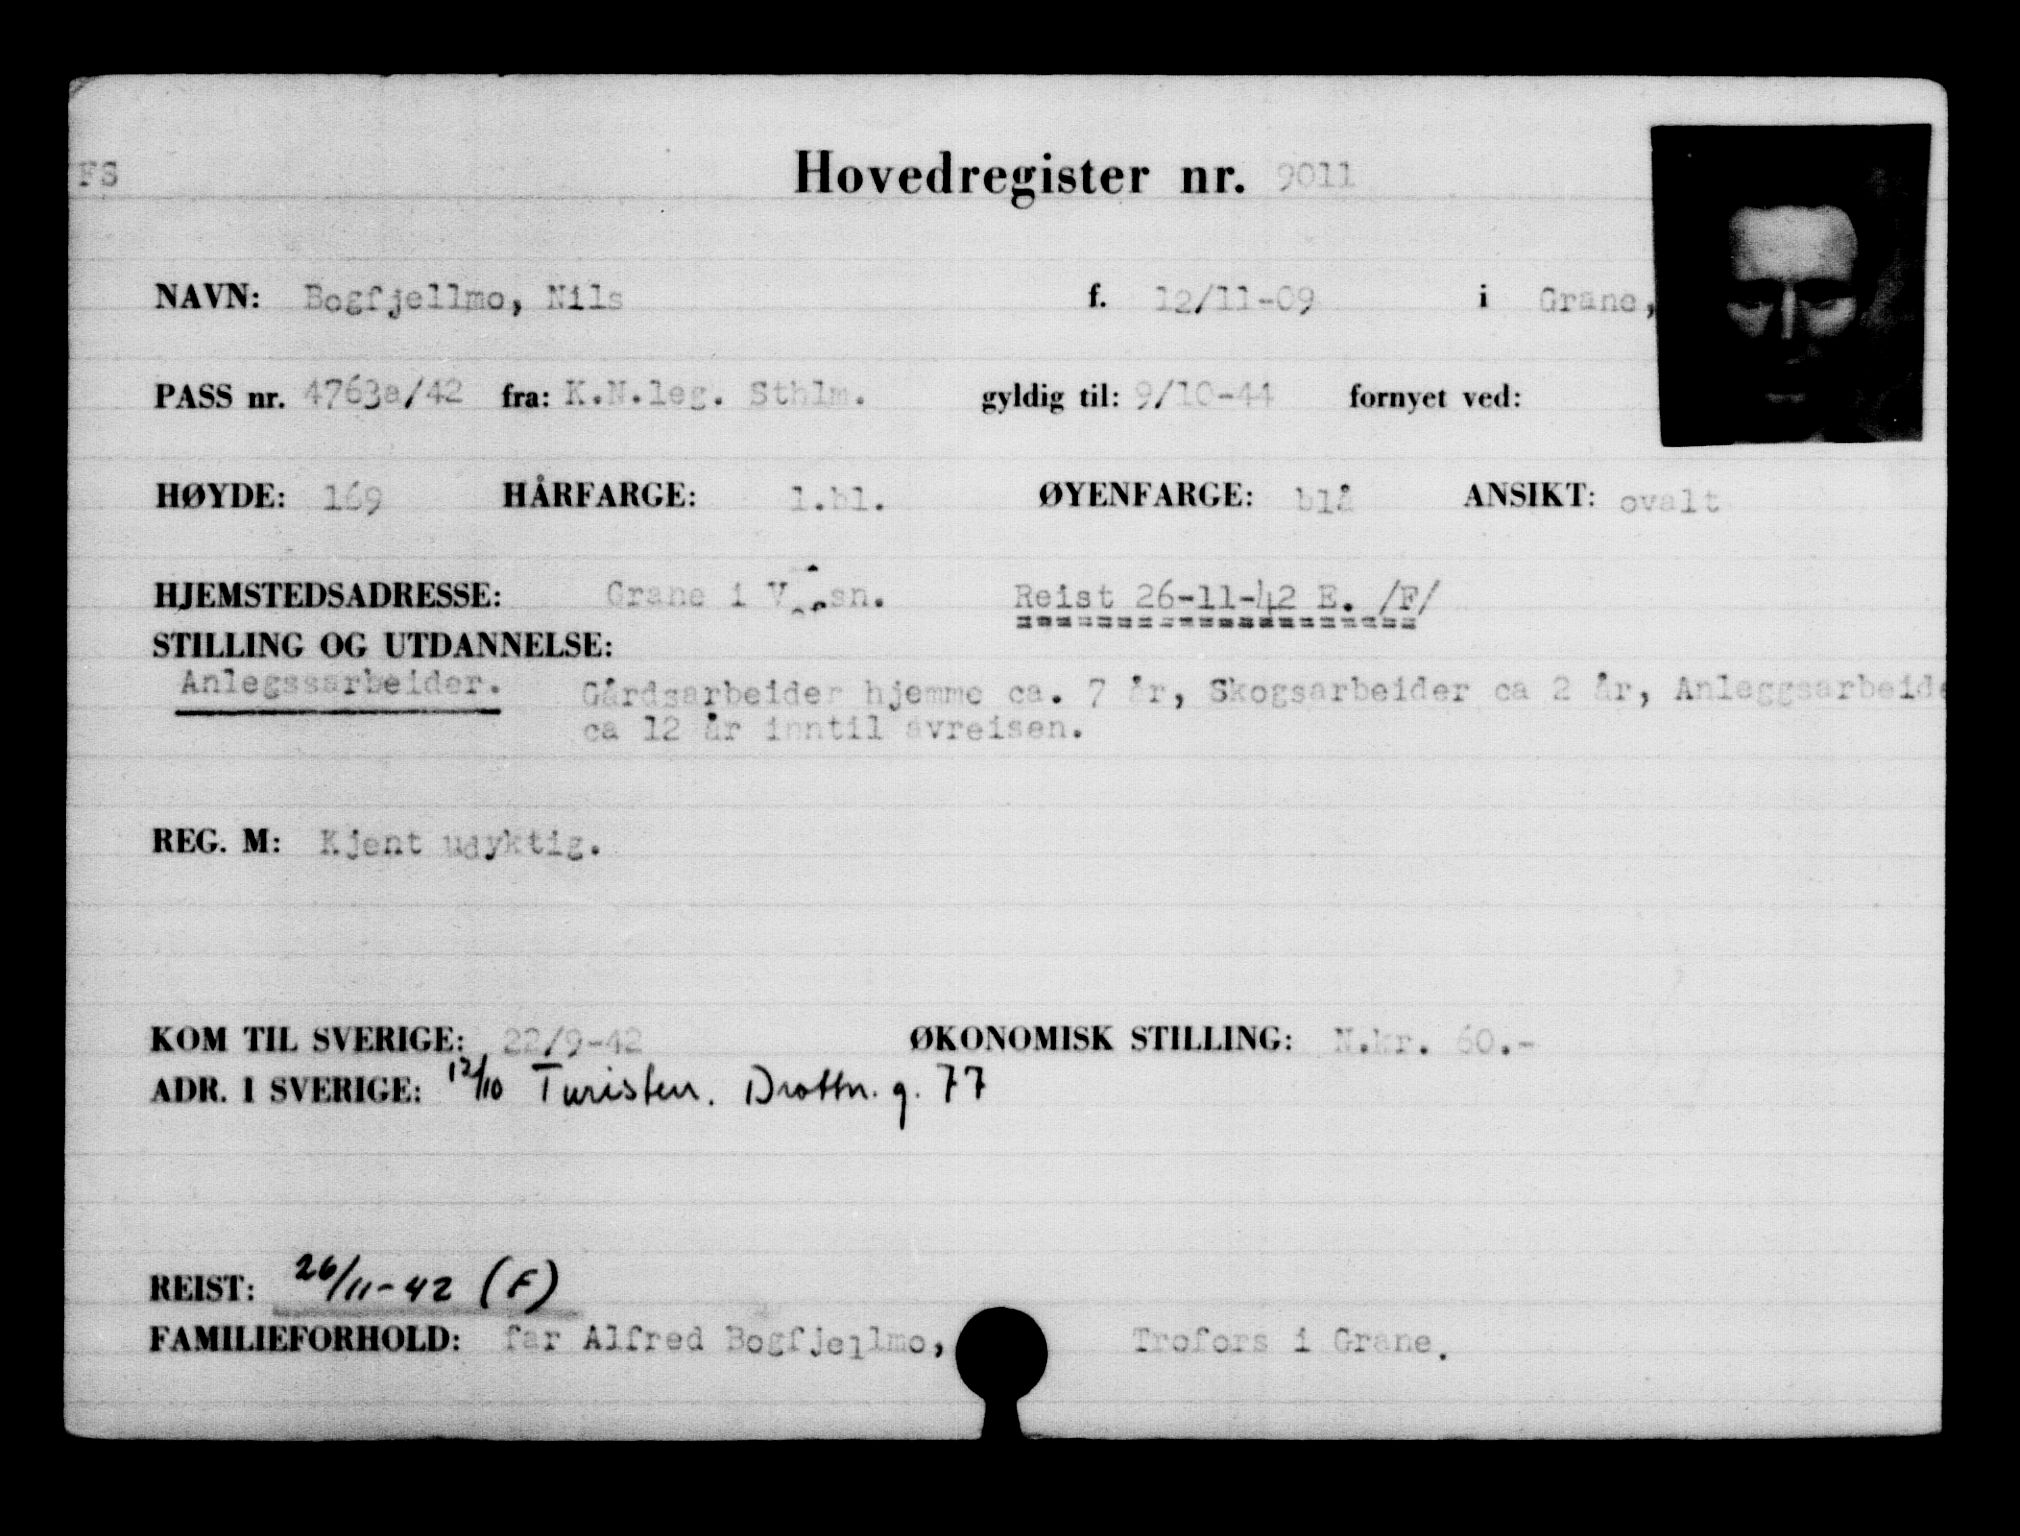 FS
Hovedregister nr. 9011
NAVN: Bogfjellmo, Nils f. 12/11-09 i Grane,
PASS nr. 4763a/42 fra: K.N.leg. Sthlm. gyldig til: 9/10-44 fornyet ved:
HØYDE: 169 HÅRFARGE: l.bl. ØYENFARGE: blå ANSIKT: ovalt
HJEMSTEDSADRESSE: Grane i Reist 26-11-42 E. /F/
STILLING OG UTDANNELSE:
Anlegssarbeider. Gårdsarbeider hjemme ca. 7 år, Skogsarbeider ca 2 år, Anleggsarbeide
ca 12 år inntil avreisen.
REG. M: Kjent udyktig.
KOM TIL SVERIGE: 22/9-42 ØKONOMISK STILLING: N.kr. 60.-
ADR. I SVERIGE: 12/10 Turisten. Drottn. g. 77
REIST: 26/11-42 (F)
FAMILIEFORHOLD: far Alfred Bogfjellmo, Trofors i Grane.